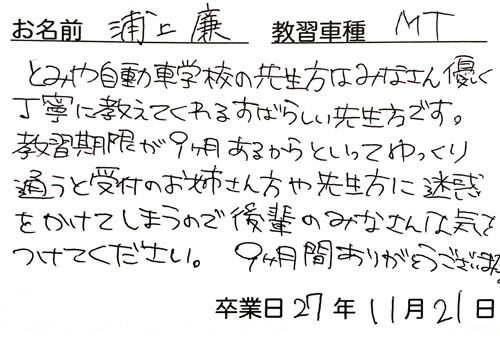 お名前 浦上 廉 教習車種 MT
とみや自動車学校の先生方はみなさん優しく
丁寧に教えてくれるすばらしい先生方です。
教習期限が9ヶ月あるからといってゆっくり
通うと受付のお姉さん方や先生方に迷惑
をかけてしまうので後輩のみなさんは気を
つけてください。 9ヶ月間ありがとうございました。
卒業日27年11月21日